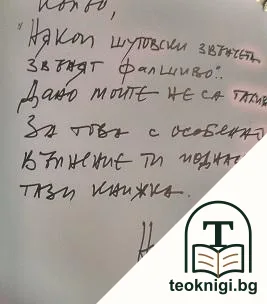 "Някои шутовски звънчета
звънят фалшиво".
Дано моите не са такива
За това с особена
вълнение ти поднас
тази книжка.
teoknigi.bg